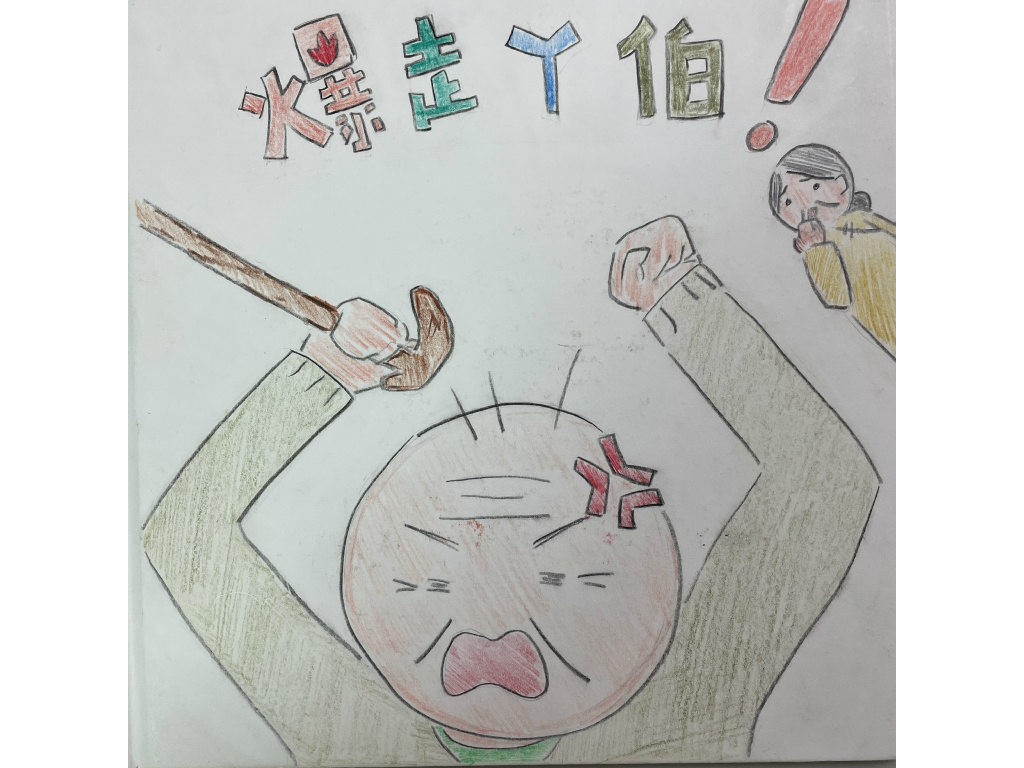 爆走丫伯！